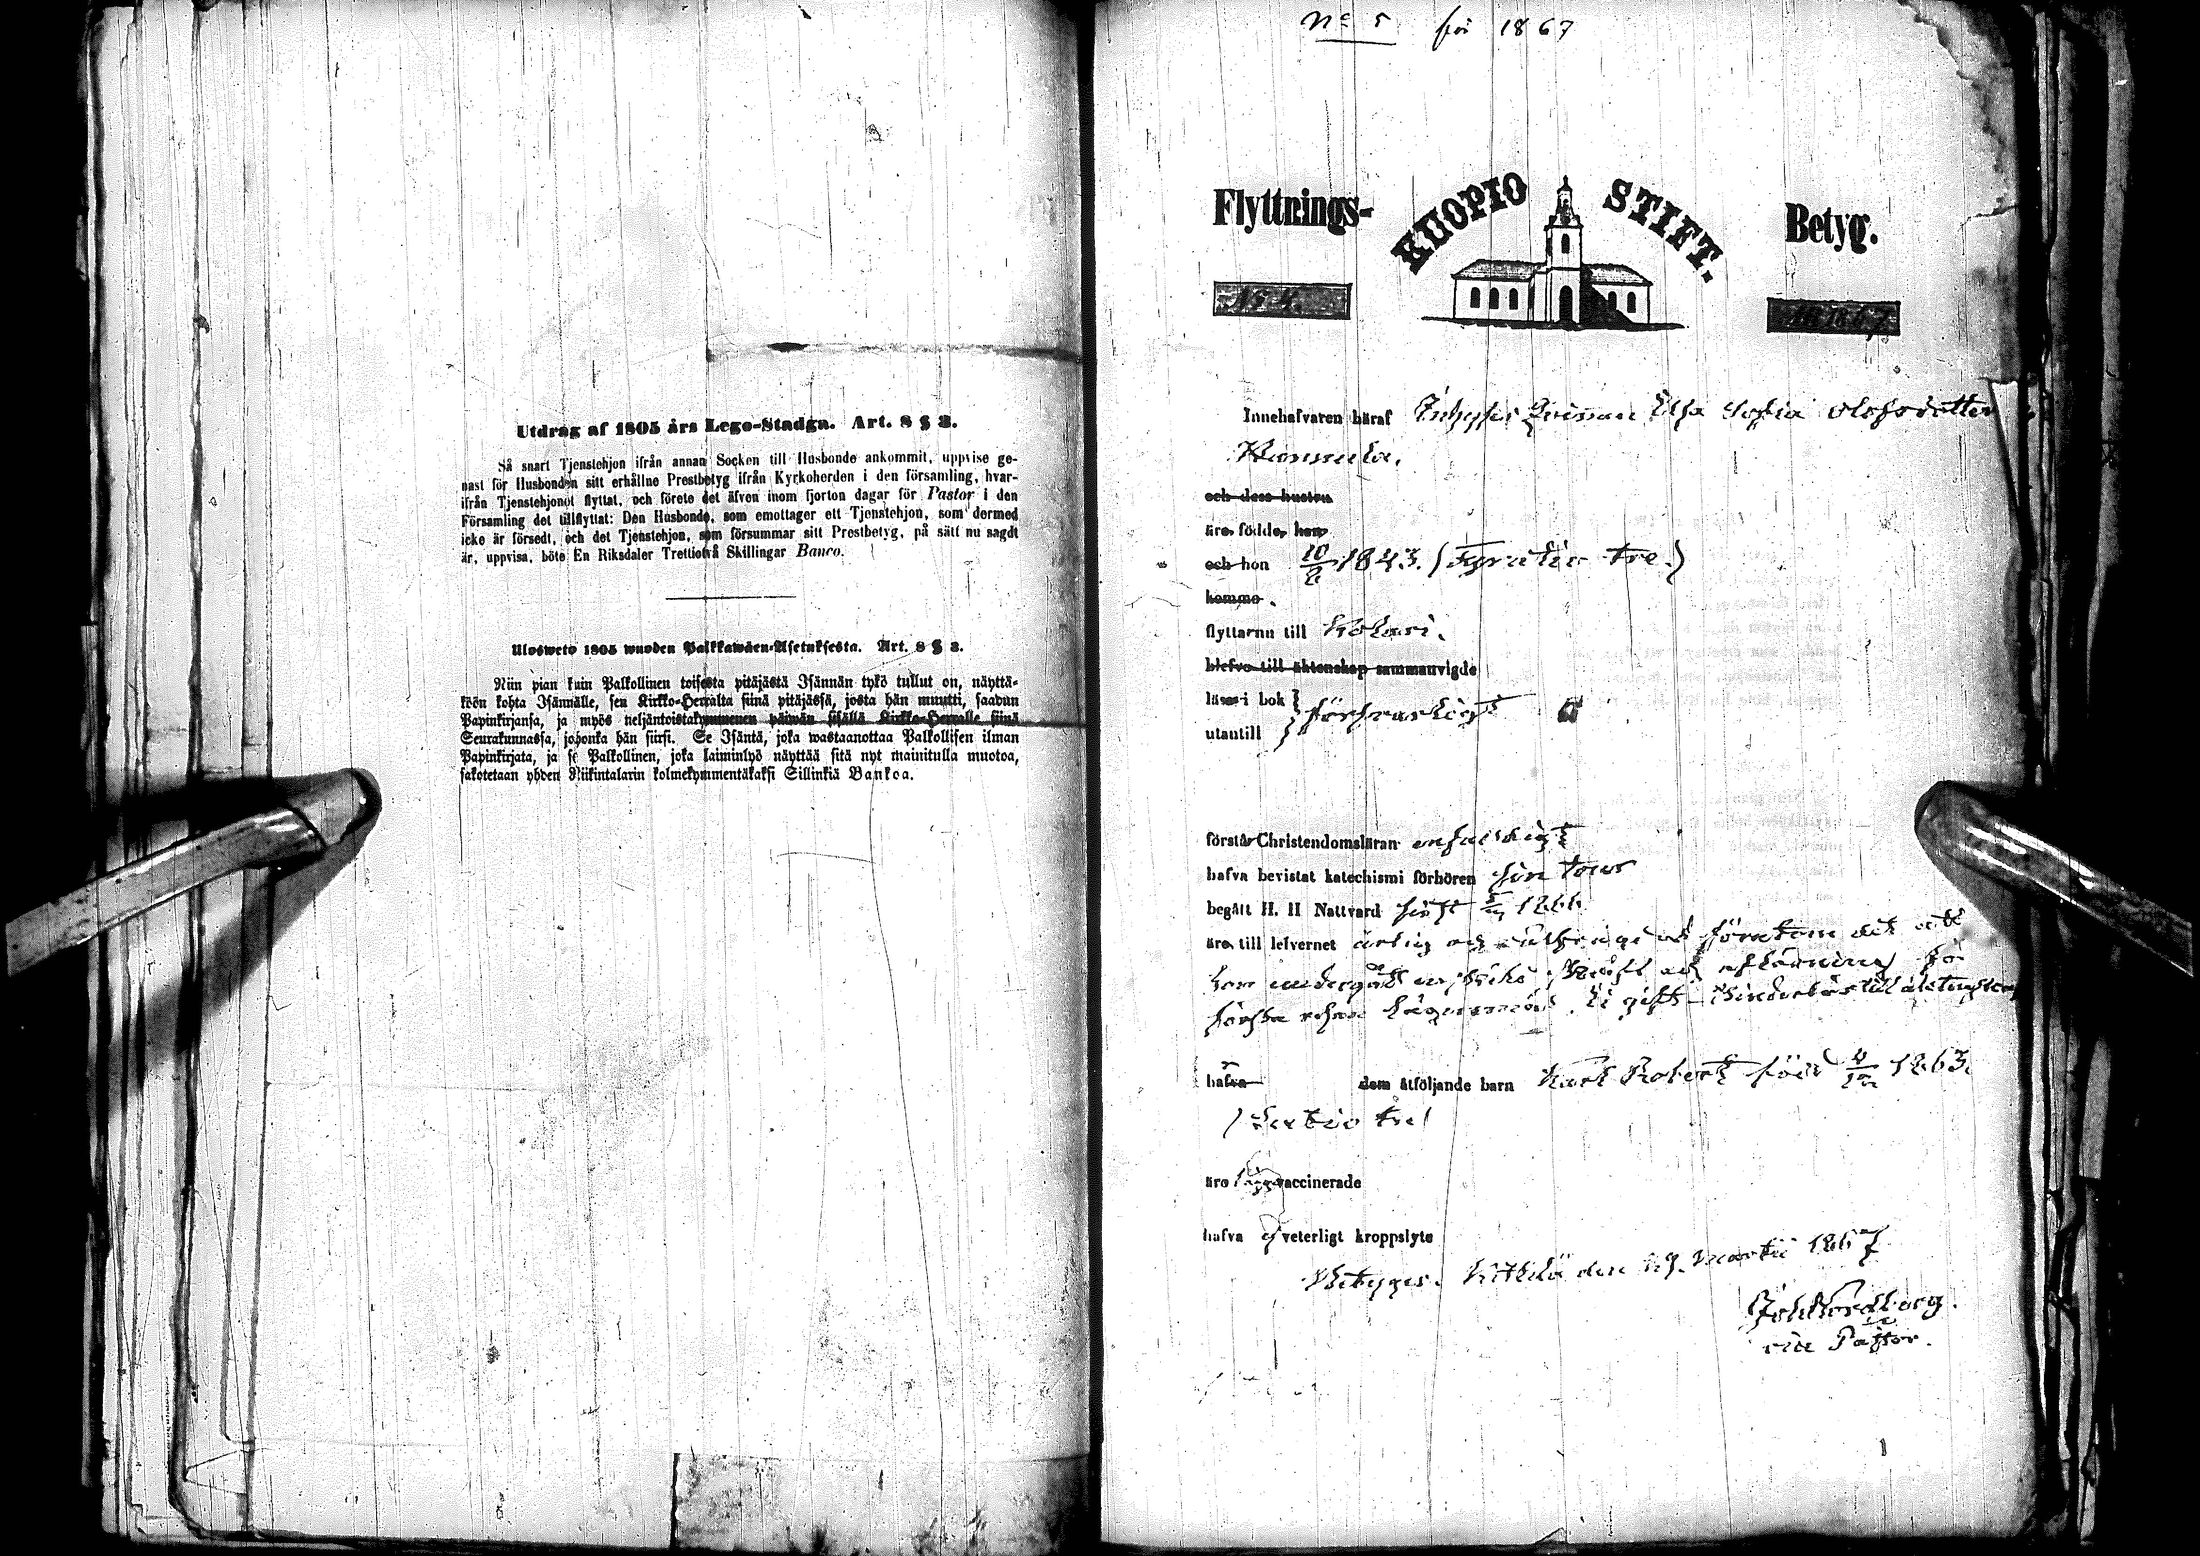 Utdrag af 1805 års Lego-Stadga. Art. 8 § 3.
Så snart Tjenstehjon ifrån annan Socken till Husbonde ankommit, uppvise ge-
nast för Husbonden sitt erhållne Prestbetyg ifrån Kyrkoherden i den församling, hvar-
ifrån Tjenstehjonet flyttat, och förete det äfven inom fjorton dagar för Pastor i den
Församling det tillflyttat: Den Husbonde, som emottager ett Tjenstehjon, som dermed
icke är försedt, och det Tjenstehjon, som försummar sitt Prestbetyg, på sätt nu sagdt
är, uppvisa, böte En Riksdaler Trettiotvå Skillingar Banco.
Ulosweto 1805 wuoden Palkkawäen-Asetuksesta. Art. 8 § 3.
Niin pian kuin Palkollinen toisesta pitäjästä Isännän tykö tullut on, näyttä-
köön kohta Isännälle, sen Kirkko-Herralta siinä pitäjässä, josta hän muutti, saadun
Papinkirjansa, ja myös neljäntoistakymmenen päiwän sisällä Kirkko-Herralle siinä
Seurakunnassa, johonka hän siirsi. Se Isäntä, joka wastaanottaa Palkollisen ilman
Papinkirjata, ja se Palkollinen, joka laiminlyö näyttää sitä nyt mainitulla muotoa,
sakotetaan yhden Riikintalarin kolmekymmentäkaksi Sillinkiä Bankoa.
No 5 för 1867
Flyttnings- KUOPIO STIFT. Betyg.
No 4. 1867
Innehafvaren häraf Inhyses Qvinnan Elsa Sofia Olofsdotter
Hannula.
och dess hustru
äro födde, han
och hon 10/8 1843. (Fyratio tre.)
komne
flyttarnu till Kolari.
blefvo till äktenskap sammanvigde
läser i bok } försvarligt
utantill
förstår Christendomsläran enfaldigt
hafva bevistat katechismi förhören sin tour
begått H. H Nattvard sist 1866
äro till lefvernet ärlig och förutom det att
hon undergått enskild skrift och aflösning för
första resan lägersmål. Ej gift
hafva dem åtföljande barn Karl Robert född 4/12 1863.
(Sextio tre)
äro vaccinerade
hafva ej veterligt kroppslyte
Betygas. Kittilä den 19. Martii 1867
Joh Nordberg.
vice Pastor.
1